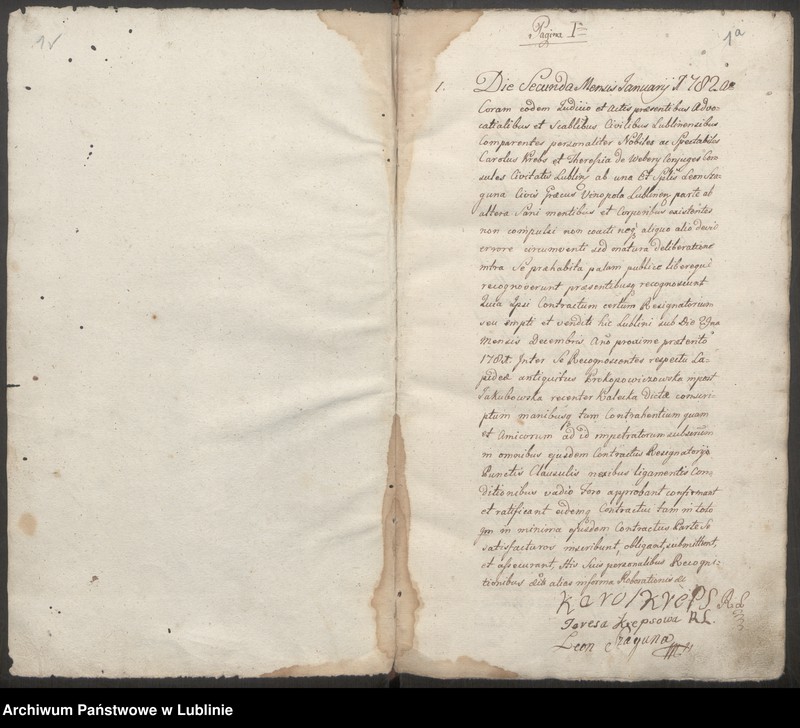 1v
Pagina I
1a
1. Die Secunda Mensis January 1782 Ao
Coram eodem Judicio et Actis præsentibus Advo-
catialibus et Scablibus Civilibus Lublinensibus
Comparentes personaliter Nobiles ac Spectabiles
Carolus Krebs et Theressia de Webery Conjuges Con
sules Civitatis Lublin ab una Et Leon Sza-
guna Civis Græcus Vinopola Lublinen parte ab
altera Sani mentibus et Corporibus existentes
non compulsi non coacti neq aliquo alio devii
errore circumventi sed matura deliberatione
intra Se præhabita palam publice libereque
recognoverunt præsentibusq recognoscunt
Quia Ipsi Contractum certum Resignatorium
seu empti et venditi hic Lublini sub Die
Mensis Decembris Ano proxime præterito
1781 Inter Se Recognoscentes respectu La-
pideæ antiquitus Prokopowiczowska
Jakubowska recenter Kalecka Dictæ conscri-
ptum manibusq tum Contrahentium quam
et Amicorum ad id impetratorum subscriptum
in omnibus ejusdem Contractus Resignatorij
Punctis Clausulis nexibus ligamentis Con-
ditionibus vadio Foro approbant confirmant
et ratificant eidemq Contractui tam in toto
qm in minima ejusdem Contractus Parte Se
satisfacturos inscribunt, obligant, submittunt,
et assecurant, His Suis personalibus Recogni-
tionibus alias in forma Roborationis &c
Karol Kreps R L
Teresa Krepsowa RL.
Leon Szaguna
Archiwum Państwowe w Lublinie